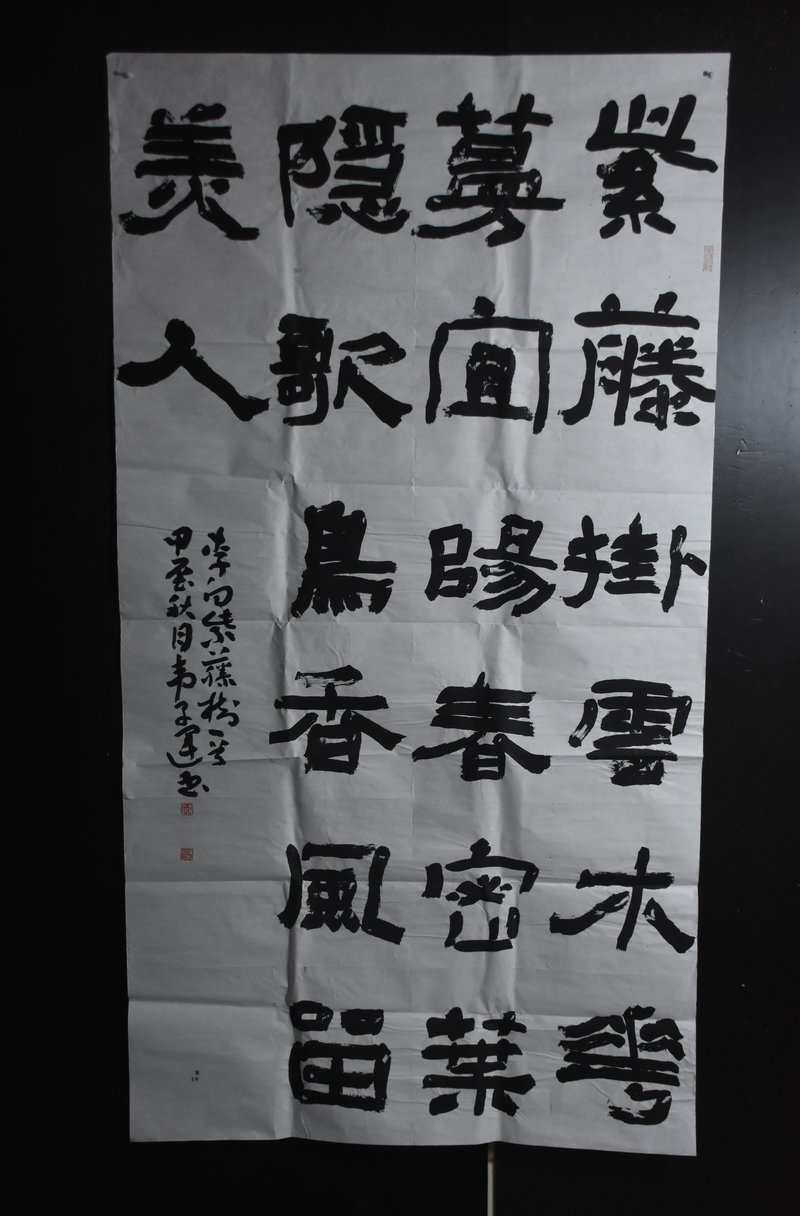 紫藤掛雲木花
蔓宜陽春密葉
隐歌鳥香風留
美人
李白紫藤樹一首
秋月韦子운书